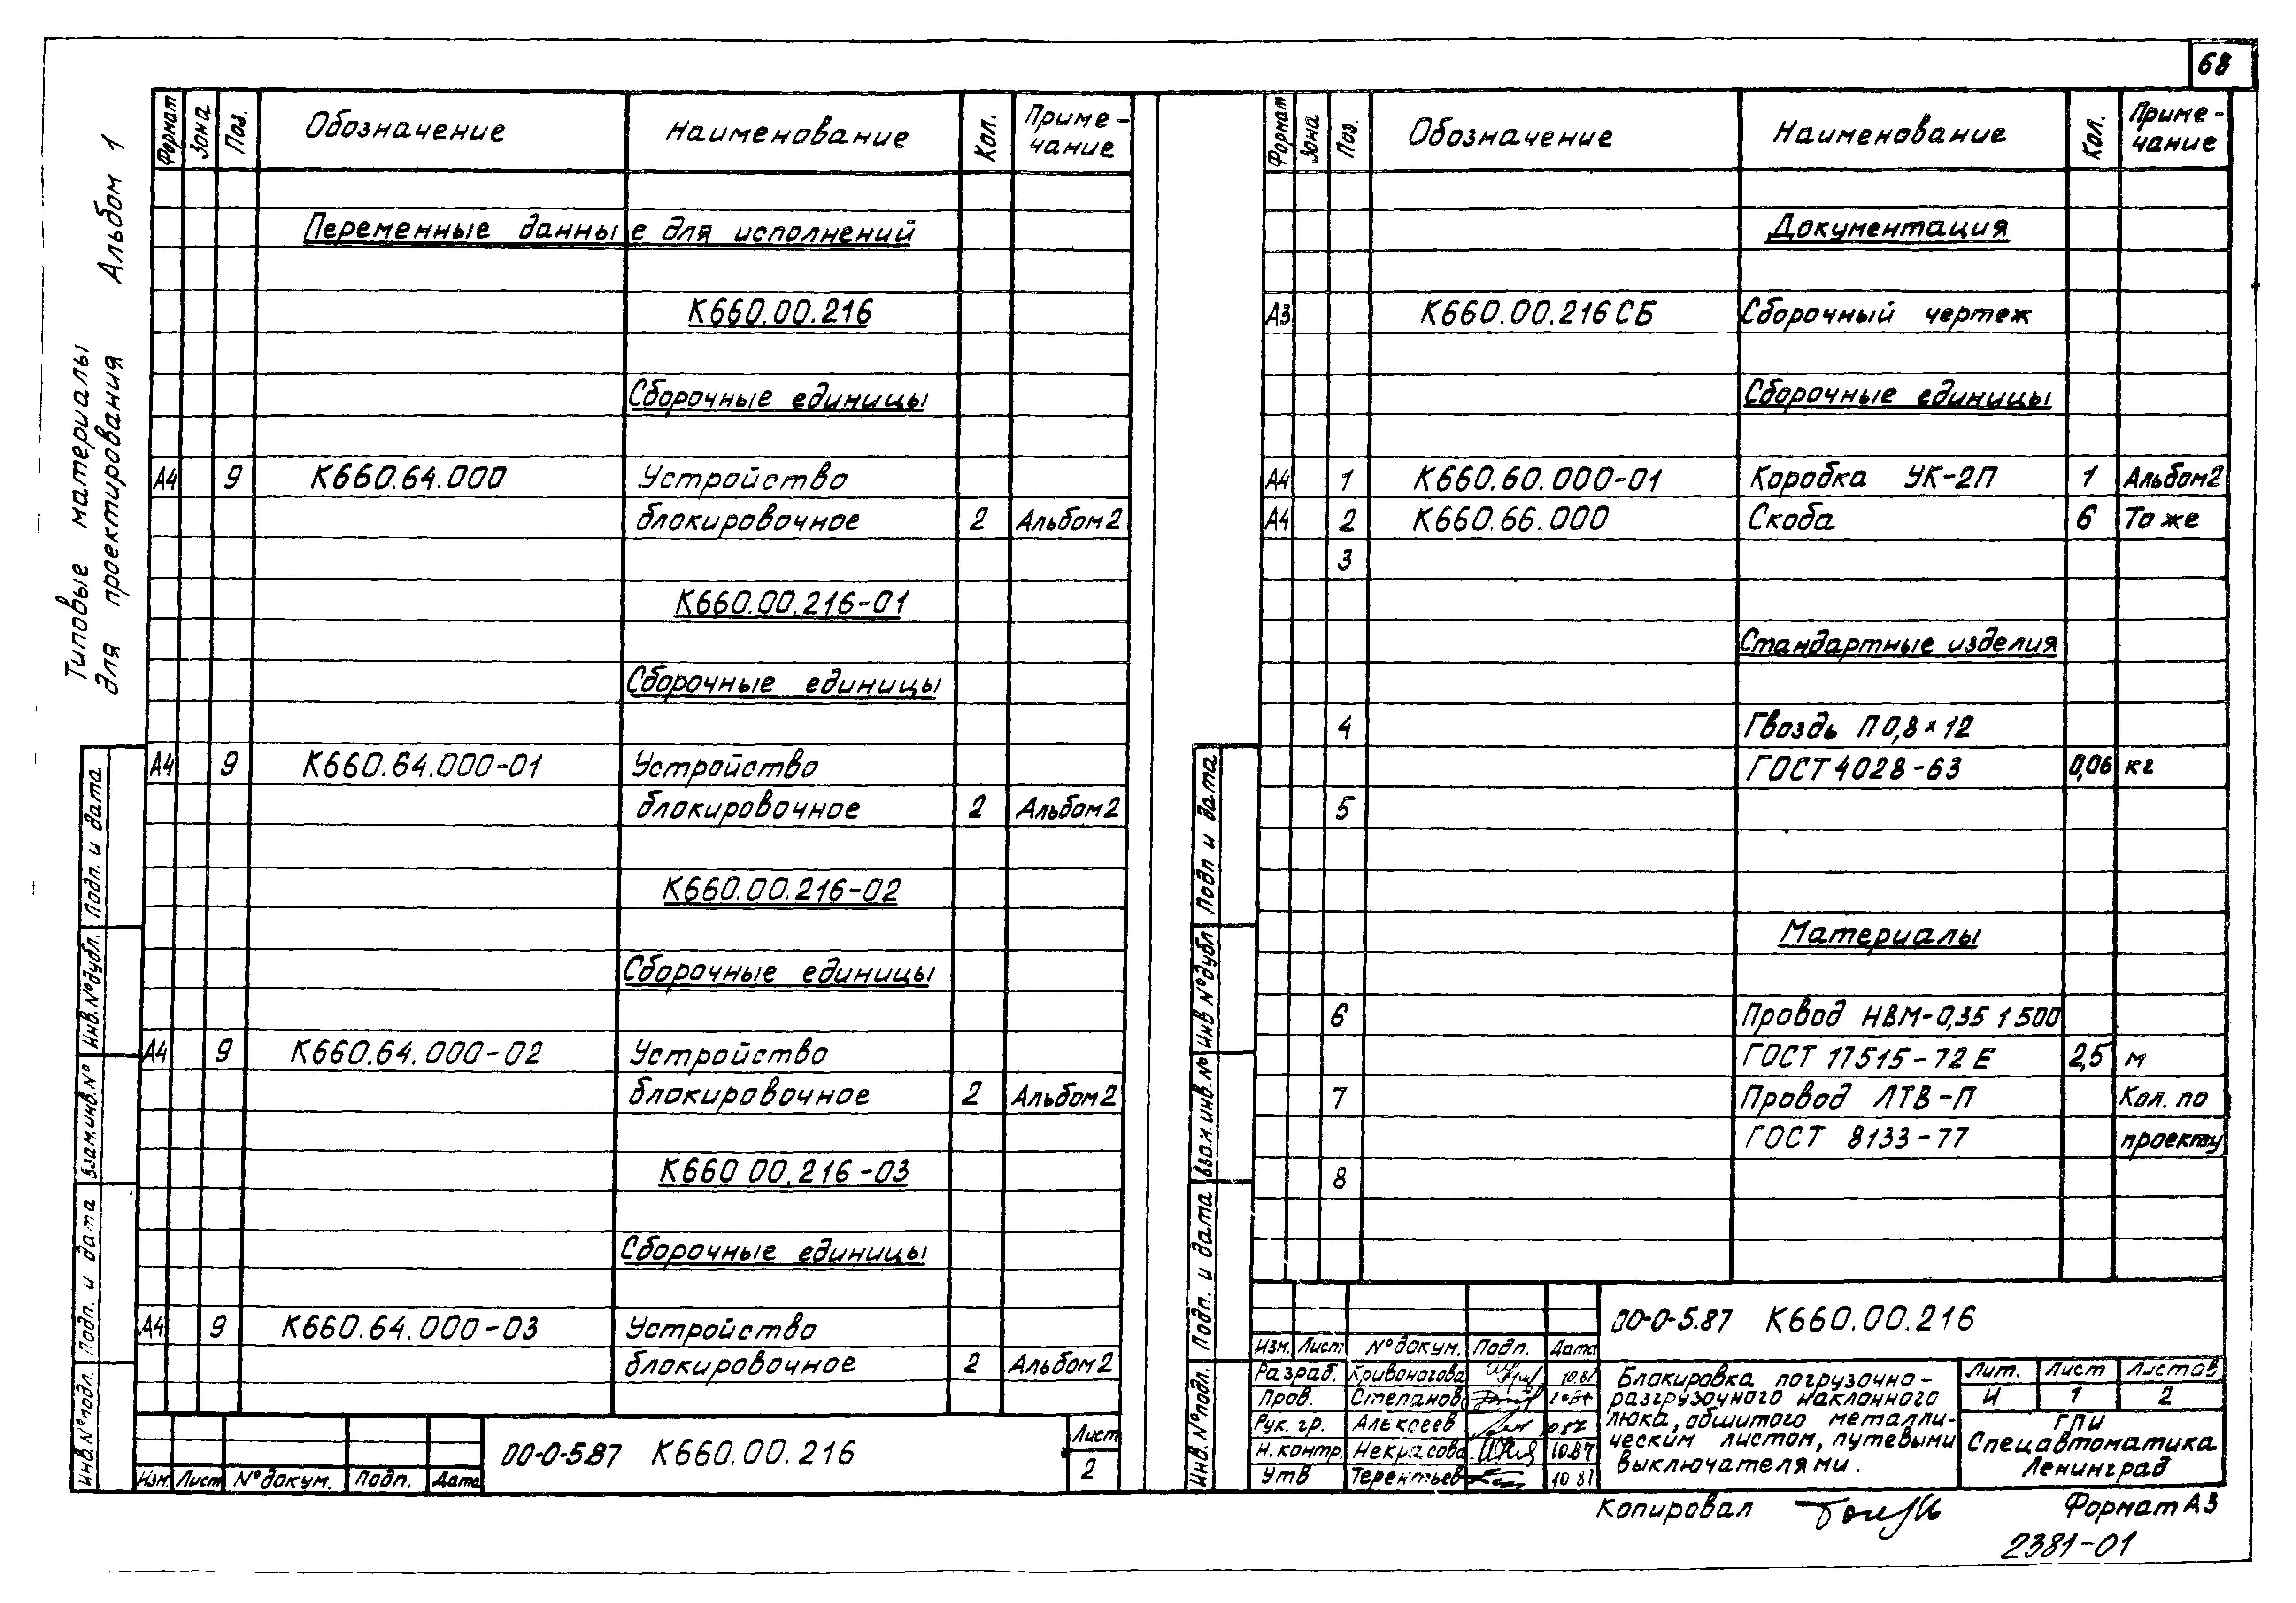 68
Типовые материалы
для проектирования Альбом 1
Формат Зона Поз. Обозначение Наименование Кол. Приме-
чание
Переменные данные для исполнений
К660.00.216
Сборочные единицы
А4 9 К660.64.000 Устройство
блокировочное 2 Альбом2
К660.00.216-01
Сборочные единицы
А4 9 К660.64.000-01 Устройство
блокировочное 2 Альбом2
К660.00.216-02
Сборочные единицы
А4 9 К660.64.000-02 Устройство
блокировочное 2 Альбом2
К660 00.216-03
Сборочные единицы
А4 9 К660.64.000-03 Устройство
блокировочное 2 Альбом2
Инв.№подл. Подп. и дата Взам.инв.№ Инв.№дубл. Подп. и дата
Изм. Лист №докум. Подп. Дата
00-0-5.87 К660.00.216
Лист
2
Формат Зона Поз. Обозначение Наименование Кол. Приме-
чание
Документация
А3 К660.00.216СБ Сборочный чертеж
Сборочные единицы
А4 1 К660.60.000-01 Коробка УК-2П 1 Альбом2
А4 2 К660.66.000 Скоба 6 То же
3
Стандартные изделия
4 Гвоздь П 0,8×12
ГОСТ 4028-63 0,06 кг
5
Материалы
6 Провод НВМ-0,35 1 500
ГОСТ 17515-72 Е 2,5 м
7 Провод ЛТВ-П Кол. по
ГОСТ 8133-77 проекту
8
Инв.№подл. Подп. и дата Взам.инв.№ Инв №дубл. Подп и дата
Изм. Лист №докум. Подп. Дата
Разраб. Кривоногова 10.87
Пров. Степанов
Рук. гр. Алексеев 10.87
Н.контр. Некрасова 10.87
Утв Терентьев 10 87
00-0-5.87 К660.00.216
Блокировка погрузочно-
разгрузочного наклонного
люка, обшитого металли-
ческим листом, путевыми
выключателями.
Лит. Лист Листов
И 1 2
ГПИ
Спецавтоматика
Ленинград
Копировал Формат А3
2381-01